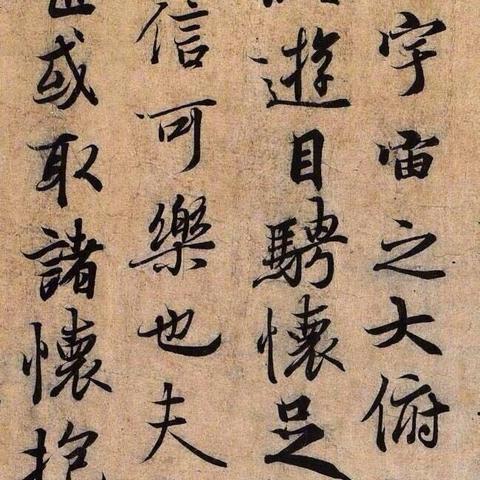 宇宙之大俯
遊目騁懷足
信可樂也夫
或取諸懷抱